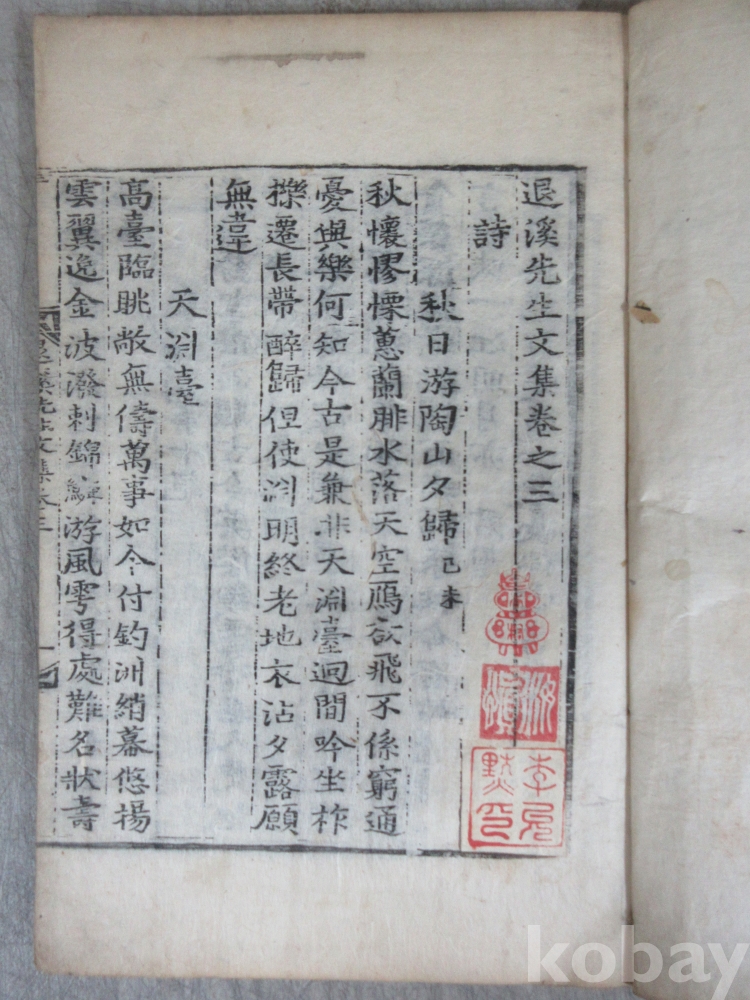 退溪先生文集卷之三
詩
秋日游陶山夕歸 己未
秋懷憀慄蕙蘭腓水落天空鴈欲飛不係窮通
憂與樂何知今古是兼非天淵臺逈閒吟坐柞
櫟遷長帶醉歸但使淵明終老地衣沾夕露願
無違
天淵臺
高臺臨眺敞無儔萬事如今付釣洲綃幕悠揚
雲翼逸金波潑剌錦鱗游風雩得處難名狀壽
退溪先生文集卷三
kobay